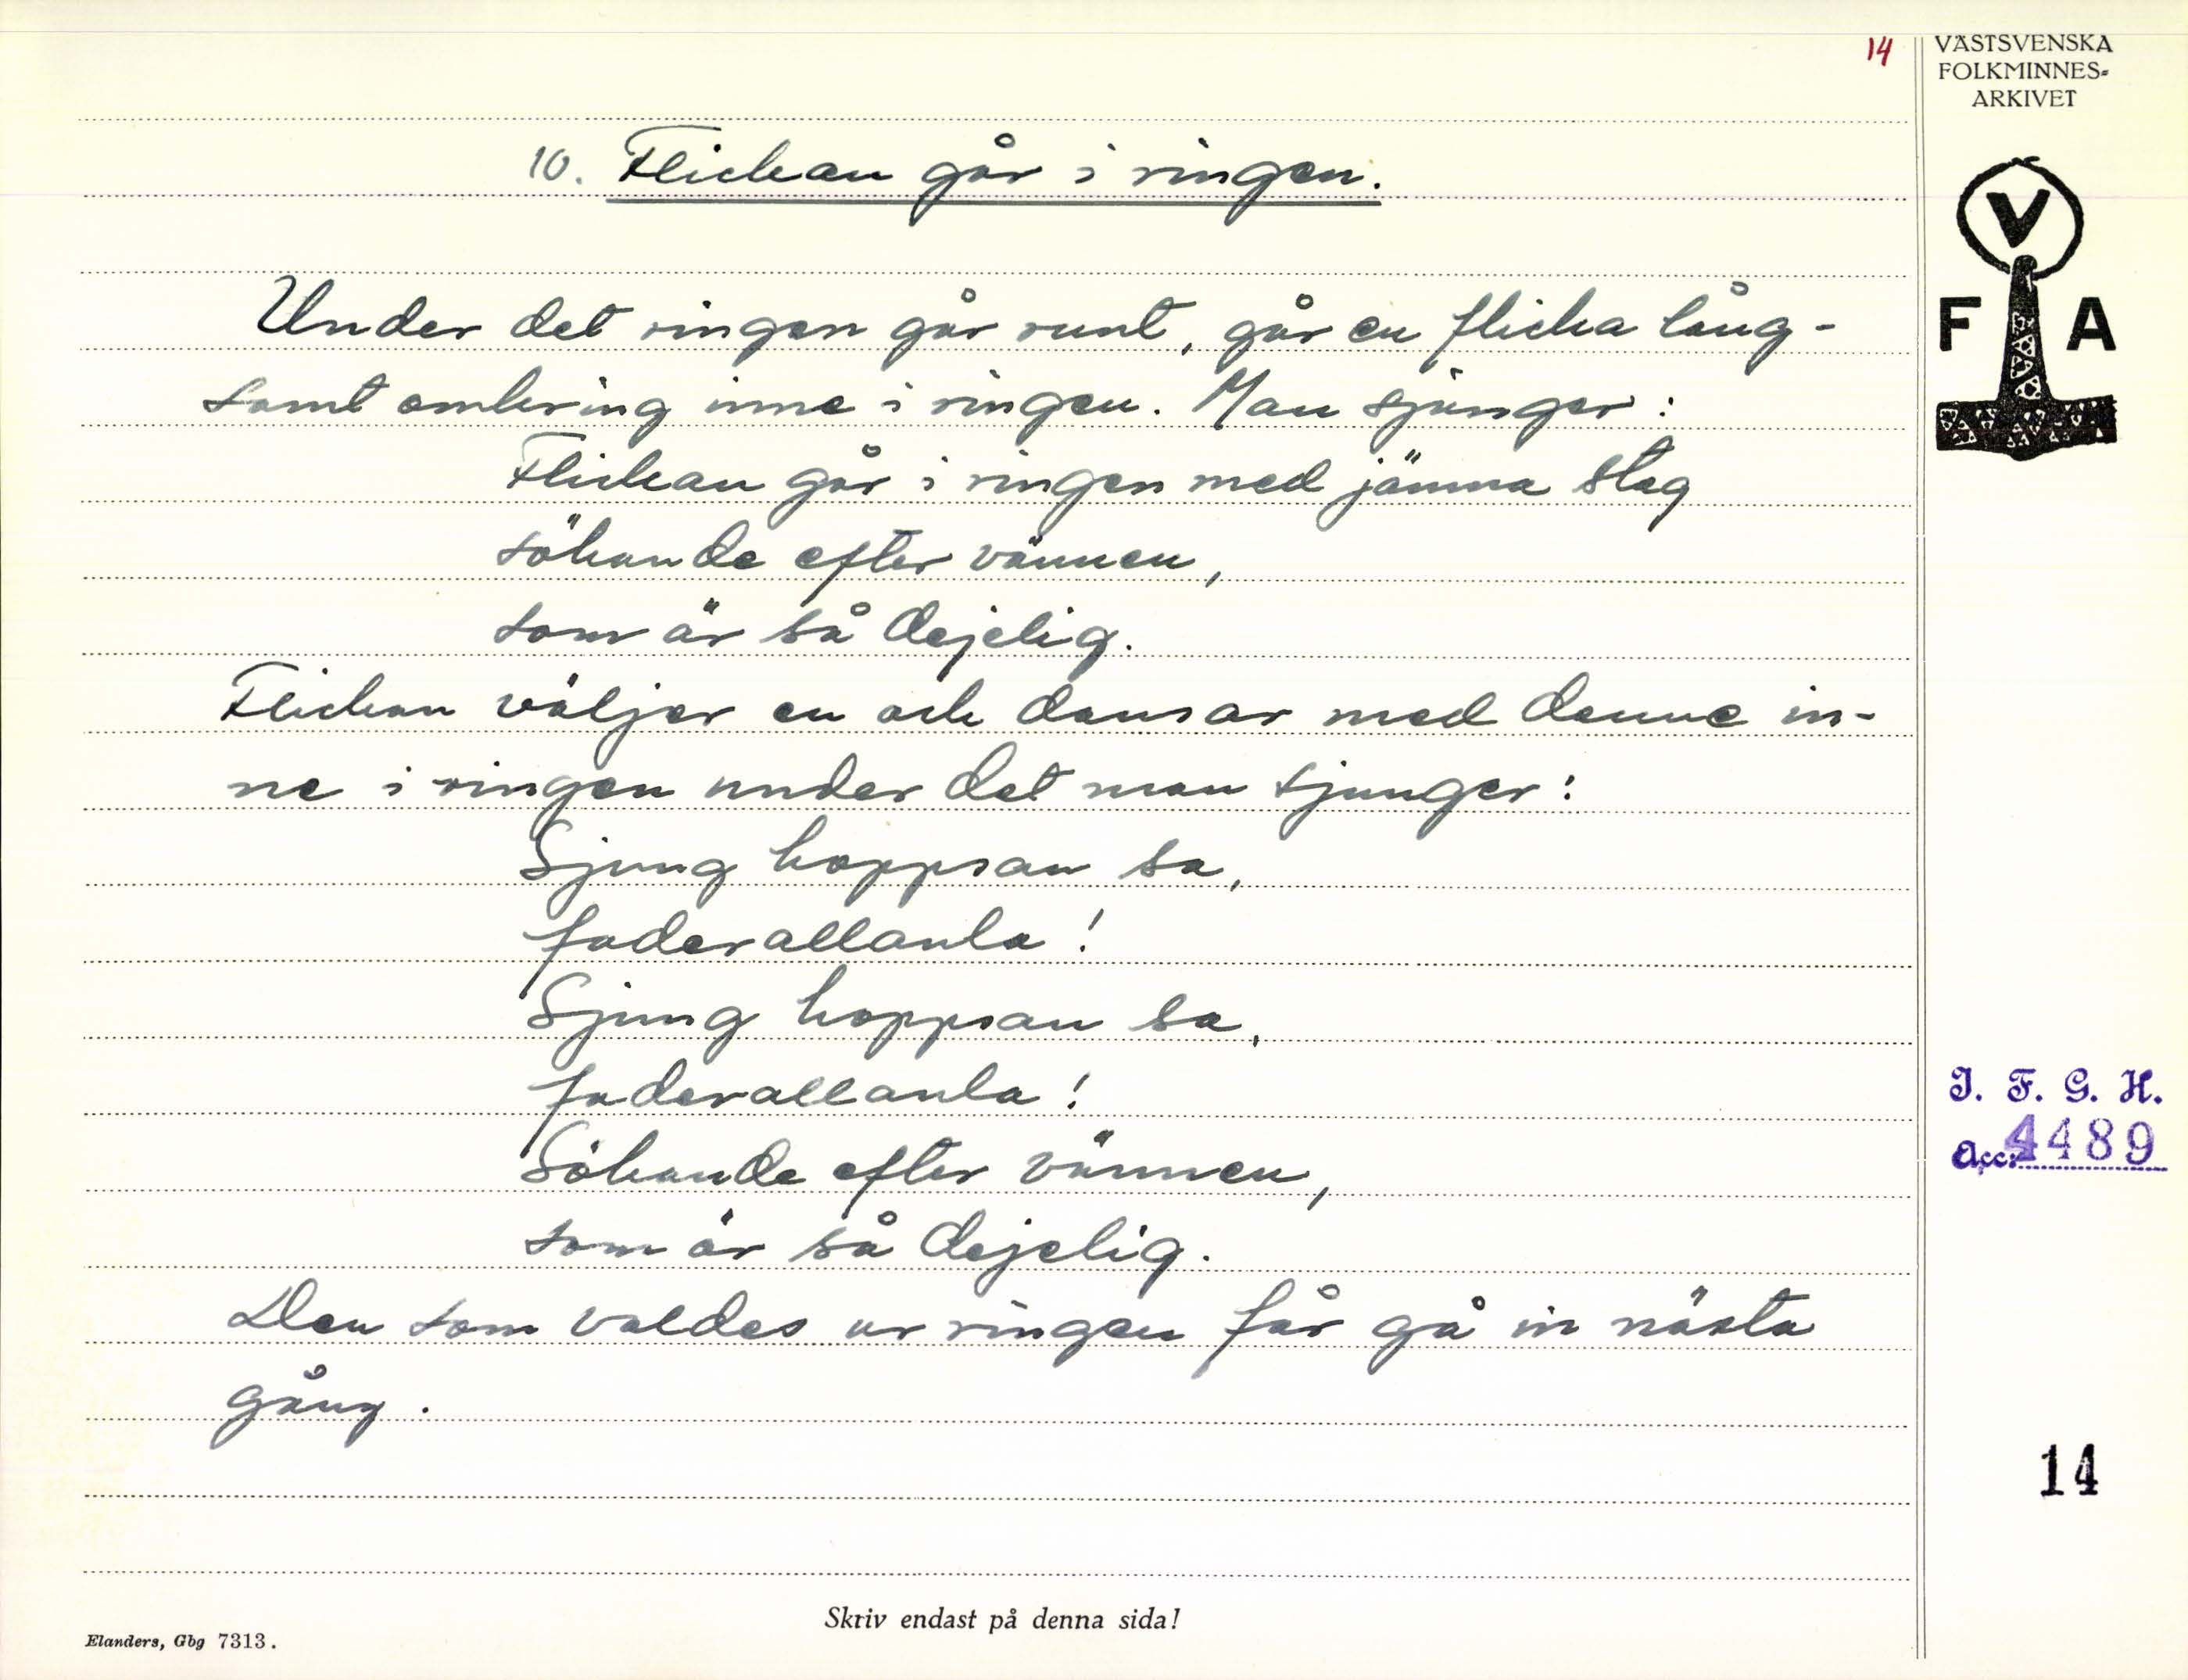 14
VÄSTSVENSKA
FOLKMINNES-
ARKIVET
V
F A
10. Flickan går i ringen.
Under det ringen går runt, går en flicka lång-
samt omkring inne i ringen. Man sjunger:
Flickan går i ringen med jämna steg
sökande efter vännen,
som är så dejelig.
Flickan väljer en och dansar med denne in-
ne i ringen under det man sjunger:
Sjung hoppsan sa,
faderallanla!
Sjung hoppsan sa,
faderallanla!
Sökande efter vännen,
som är så dejelig.
Den som valdes ur ringen får gå in nästa
gång.
I. F. G. H.
Acc: 4489
14
Skriv endast på denna sida!
Elanders, Gbg 7313.